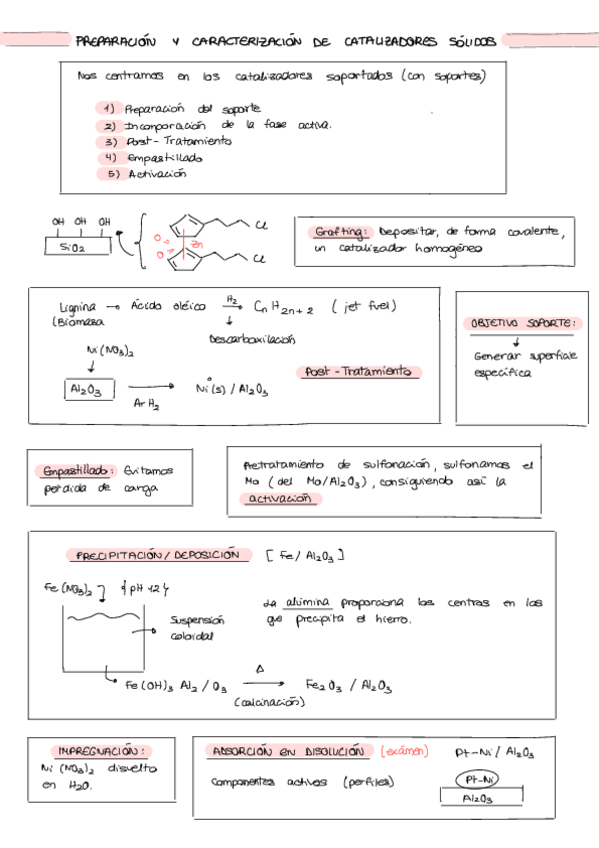 PREPARACIÓN Y CARACTERIZACIÓN DE CATALIZADORES SÓLIDOS
Nos centramos en los catalizadores soportados (con soportes)
1) Preparación del soporte
2) Incorporación de la fase activa.
3) Post-Tratamiento
4) Empastillado
5) Activación
OH OH OH
SiO2
O
O
Zn
Cl
Cl
Grafting: Depositar, de forma covalente,
un catalizador homogéneo
Lignina → Ácido oléico H2→ CnH2n+2 (jet fuel)
(Biomasa
↓
Descarboxilación
Ni(NO3)2
↓
Al2O3 → Ni°(s) / Al2O3
Ar H2
Post-Tratamiento
OBJETIVO SOPORTE:
↓
Generar superficie
específica
Empastillado: Evitamos
perdida de carga
Pretratamiento de sulfonación, sulfonamos el
Mo (del Mo/Al2O3), consiguiendo así la
activación
PRECIPITACIÓN / DEPOSICIÓN [Fe/Al2O3]
Fe(NO3)2
Suspensión
coloidal
La alúmina proporciona los centros en los
que precipita el hierro.
Fe(OH)3 Al2/O3 Δ→ Fe2O3 / Al2O3
(calcinación)
IMPREGNACIÓN:
Ni(NO3)2 disuelto
en H2O.
ABSORCIÓN en DISOLUCIÓN (exámen) Pt-Ni/Al2O3
Componentes activos (perfiles)
Pt-Ni
Al2O3